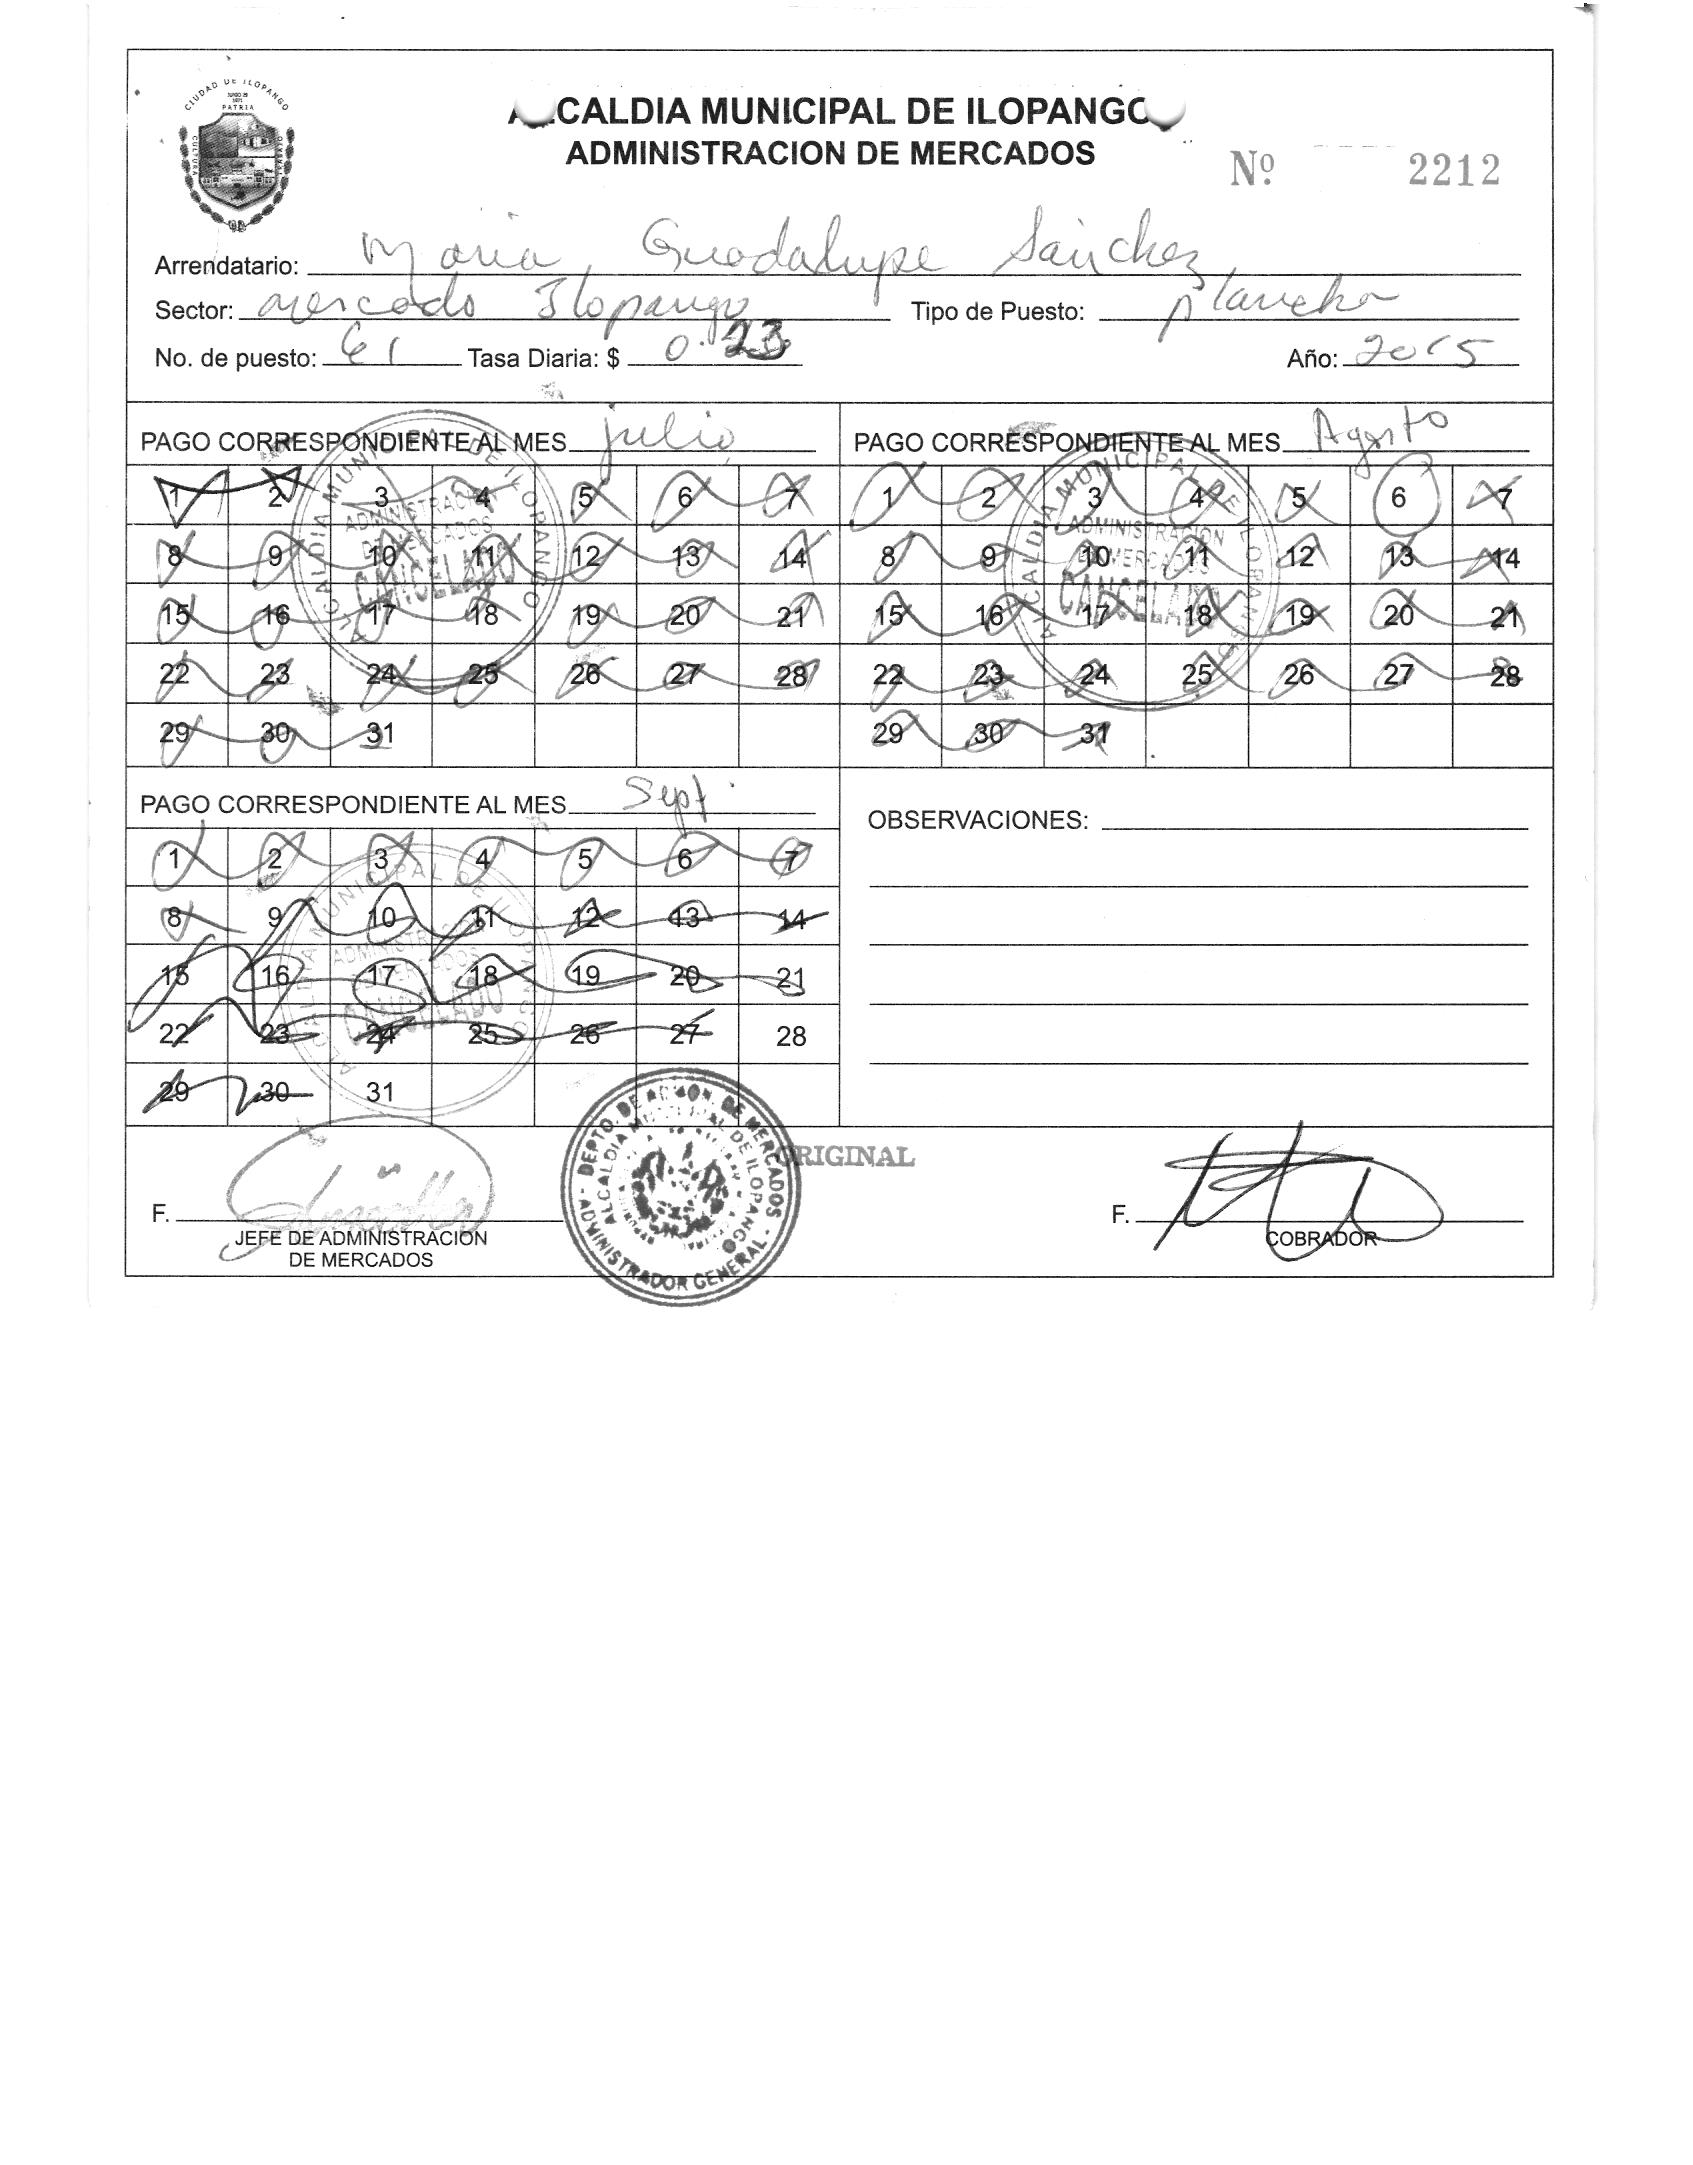 CIUDAD DE ILOPANGO
PATRIA
CULTURA
ALCALDIA MUNICIPAL DE ILOPANGO
ADMINISTRACION DE MERCADOS
Nº 2212
Arrendatario: Maria Guadalupe Sánchez
Sector: mercado Ilopango Tipo de Puesto: plancha
No. de puesto: 61 Tasa Diaria: $ 0.23 Año: 2015
PAGO CORRESPONDIENTE AL MES julio
1 2 3 4 5 6 7
8 9 10 11 12 13 14
15 16 17 18 19 20 21
22 23 24 25 26 27 28
29 30 31
ALCALDIA MUNICIPAL DE ILOPANGO
ADMINISTRACION
DE MERCADOS
CANCELADO
PAGO CORRESPONDIENTE AL MES Agosto
1 2 3 4 5 6 7
8 9 10 11 12 13 14
15 16 17 18 19 20 21
22 23 24 25 26 27 28
29 30 31
ALCALDIA MUNICIPAL DE ILOPANGO
ADMINISTRACION
DE MERCADOS
CANCELADO
PAGO CORRESPONDIENTE AL MES Sept.
1 2 3 4 5 6 7
8 9 10 11 12 13 14
15 16 17 18 19 20 21
22 23 24 25 26 27 28
29 30 31
ALCALDIA MUNICIPAL DE ILOPANGO
ADMINISTRACION
DE MERCADOS
CANCELADO
OBSERVACIONES:
F.
JEFE DE ADMINISTRACION
DE MERCADOS
DEPTO. DE ADMON. DE MERCADOS
ALCALDIA MUNICIPAL DE ILOPANGO
ADMINISTRADOR GENERAL
ORIGINAL
F.
COBRADOR